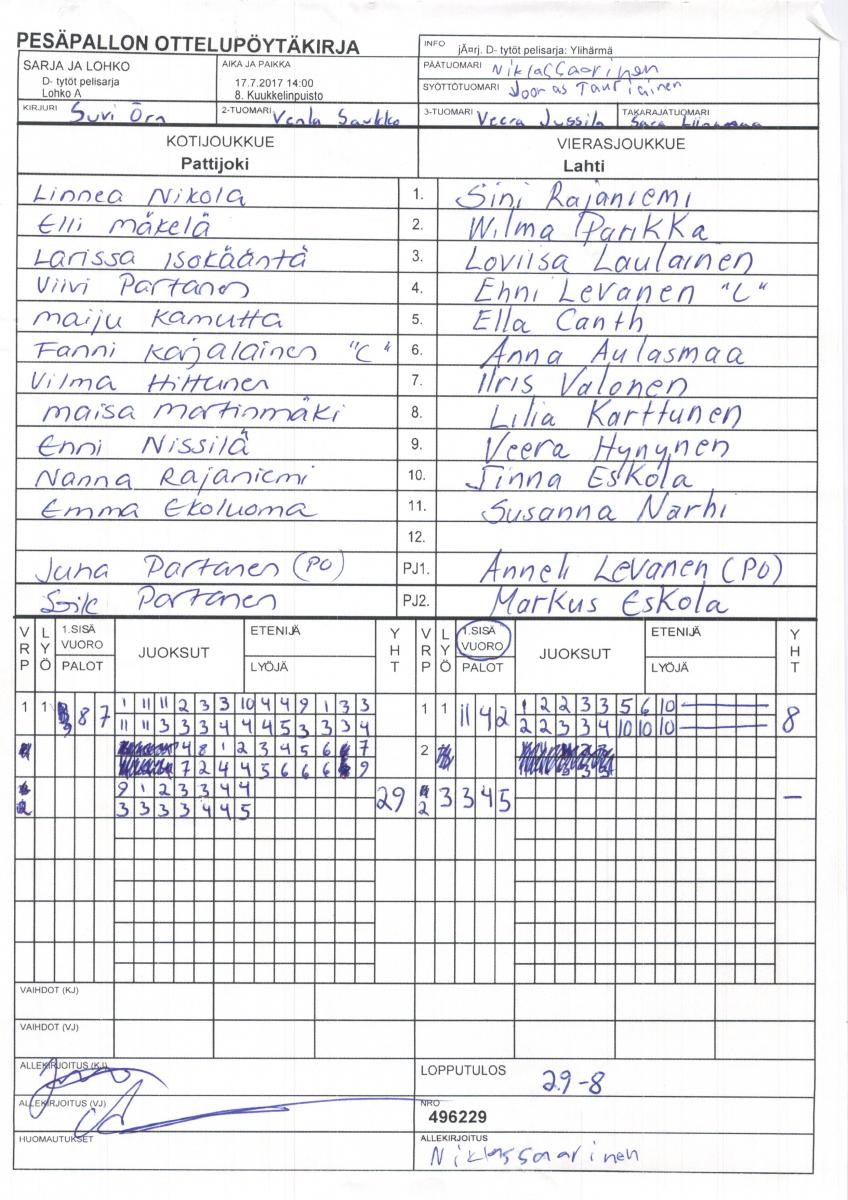 PESÄPALLON OTTELUPÖYTÄKIRJA
INFO jÃ¤rj. D- tytöt pelisarja: Ylihärmä
SARJA JA LOHKO
D- tytöt pelisarja
Lohko A
AIKA JA PAIKKA
17.7.2017 14:00
8. Kuukkelinpuisto
PÄÄTUOMARI Niklas Saarinen
SYÖTTÖTUOMARI Joonas Tauriainen
KIRJURI Suvi Örn 2-TUOMARI Venla Saukko 3-TUOMARI Veera Jussila TAKARAJATUOMARI Sara
KOTIJOUKKUE VIERASJOUKKUE
Pattijoki Lahti
Linnea Nikola 1. Sini Rajaniemi
Elli mäkelä 2. Wilma Parikka
Larissa isokääntä 3. Loviisa Laulainen
Viivi Partanen 4. Enni Levanen "C"
maiju Kamutta 5. Ella Canth
Fanni Karjalainen "C" 6. Anna Aulasmaa
Vilma Hittunen 7. Iiris Valonen
maisa martinmäki 8. Lilia Karttunen
Enni Nissilä 9. Veera Hynynen
Nanna Rajaniemi 10. Jinna Eskola
Emma Ekoluoma 11. Susanna Närhi
12.
Juha Partanen (PO) PJ1. Anneli Levanen (PO)
Partanen PJ2. Markus Eskola
VRP LYÖ 1.SISÄ VUORO PALOT JUOKSUT ETENIJÄ LYÖJÄ YHT VRP LYÖ 1.SISÄ VUORO PALOT JUOKSUT ETENIJÄ LYÖJÄ YHT
1 1 8 7 1 11 11 2 3 3 10 4 4 9 1 3 3 1 1 11 4 2 1 2 2 3 3 5 6 10 8
9 11 11 3 3 3 4 4 4 5 3 3 3 4 2 2 3 3 4 10 10 10
4 8 1 2 3 4 5 6 7 2
7 2 4 4 5 6 6 6 9
9 1 2 3 3 4 4 29 3 3 4 5 –
2 3 3 3 3 4 4 5 2
VAIHDOT (KJ)
VAIHDOT (VJ)
ALLEKIRJOITUS (KJ) LOPPUTULOS 29-8
ALLEKIRJOITUS (VJ) NRO
496229
HUOMAUTUKSET ALLEKIRJOITUS
Niklas Saarinen